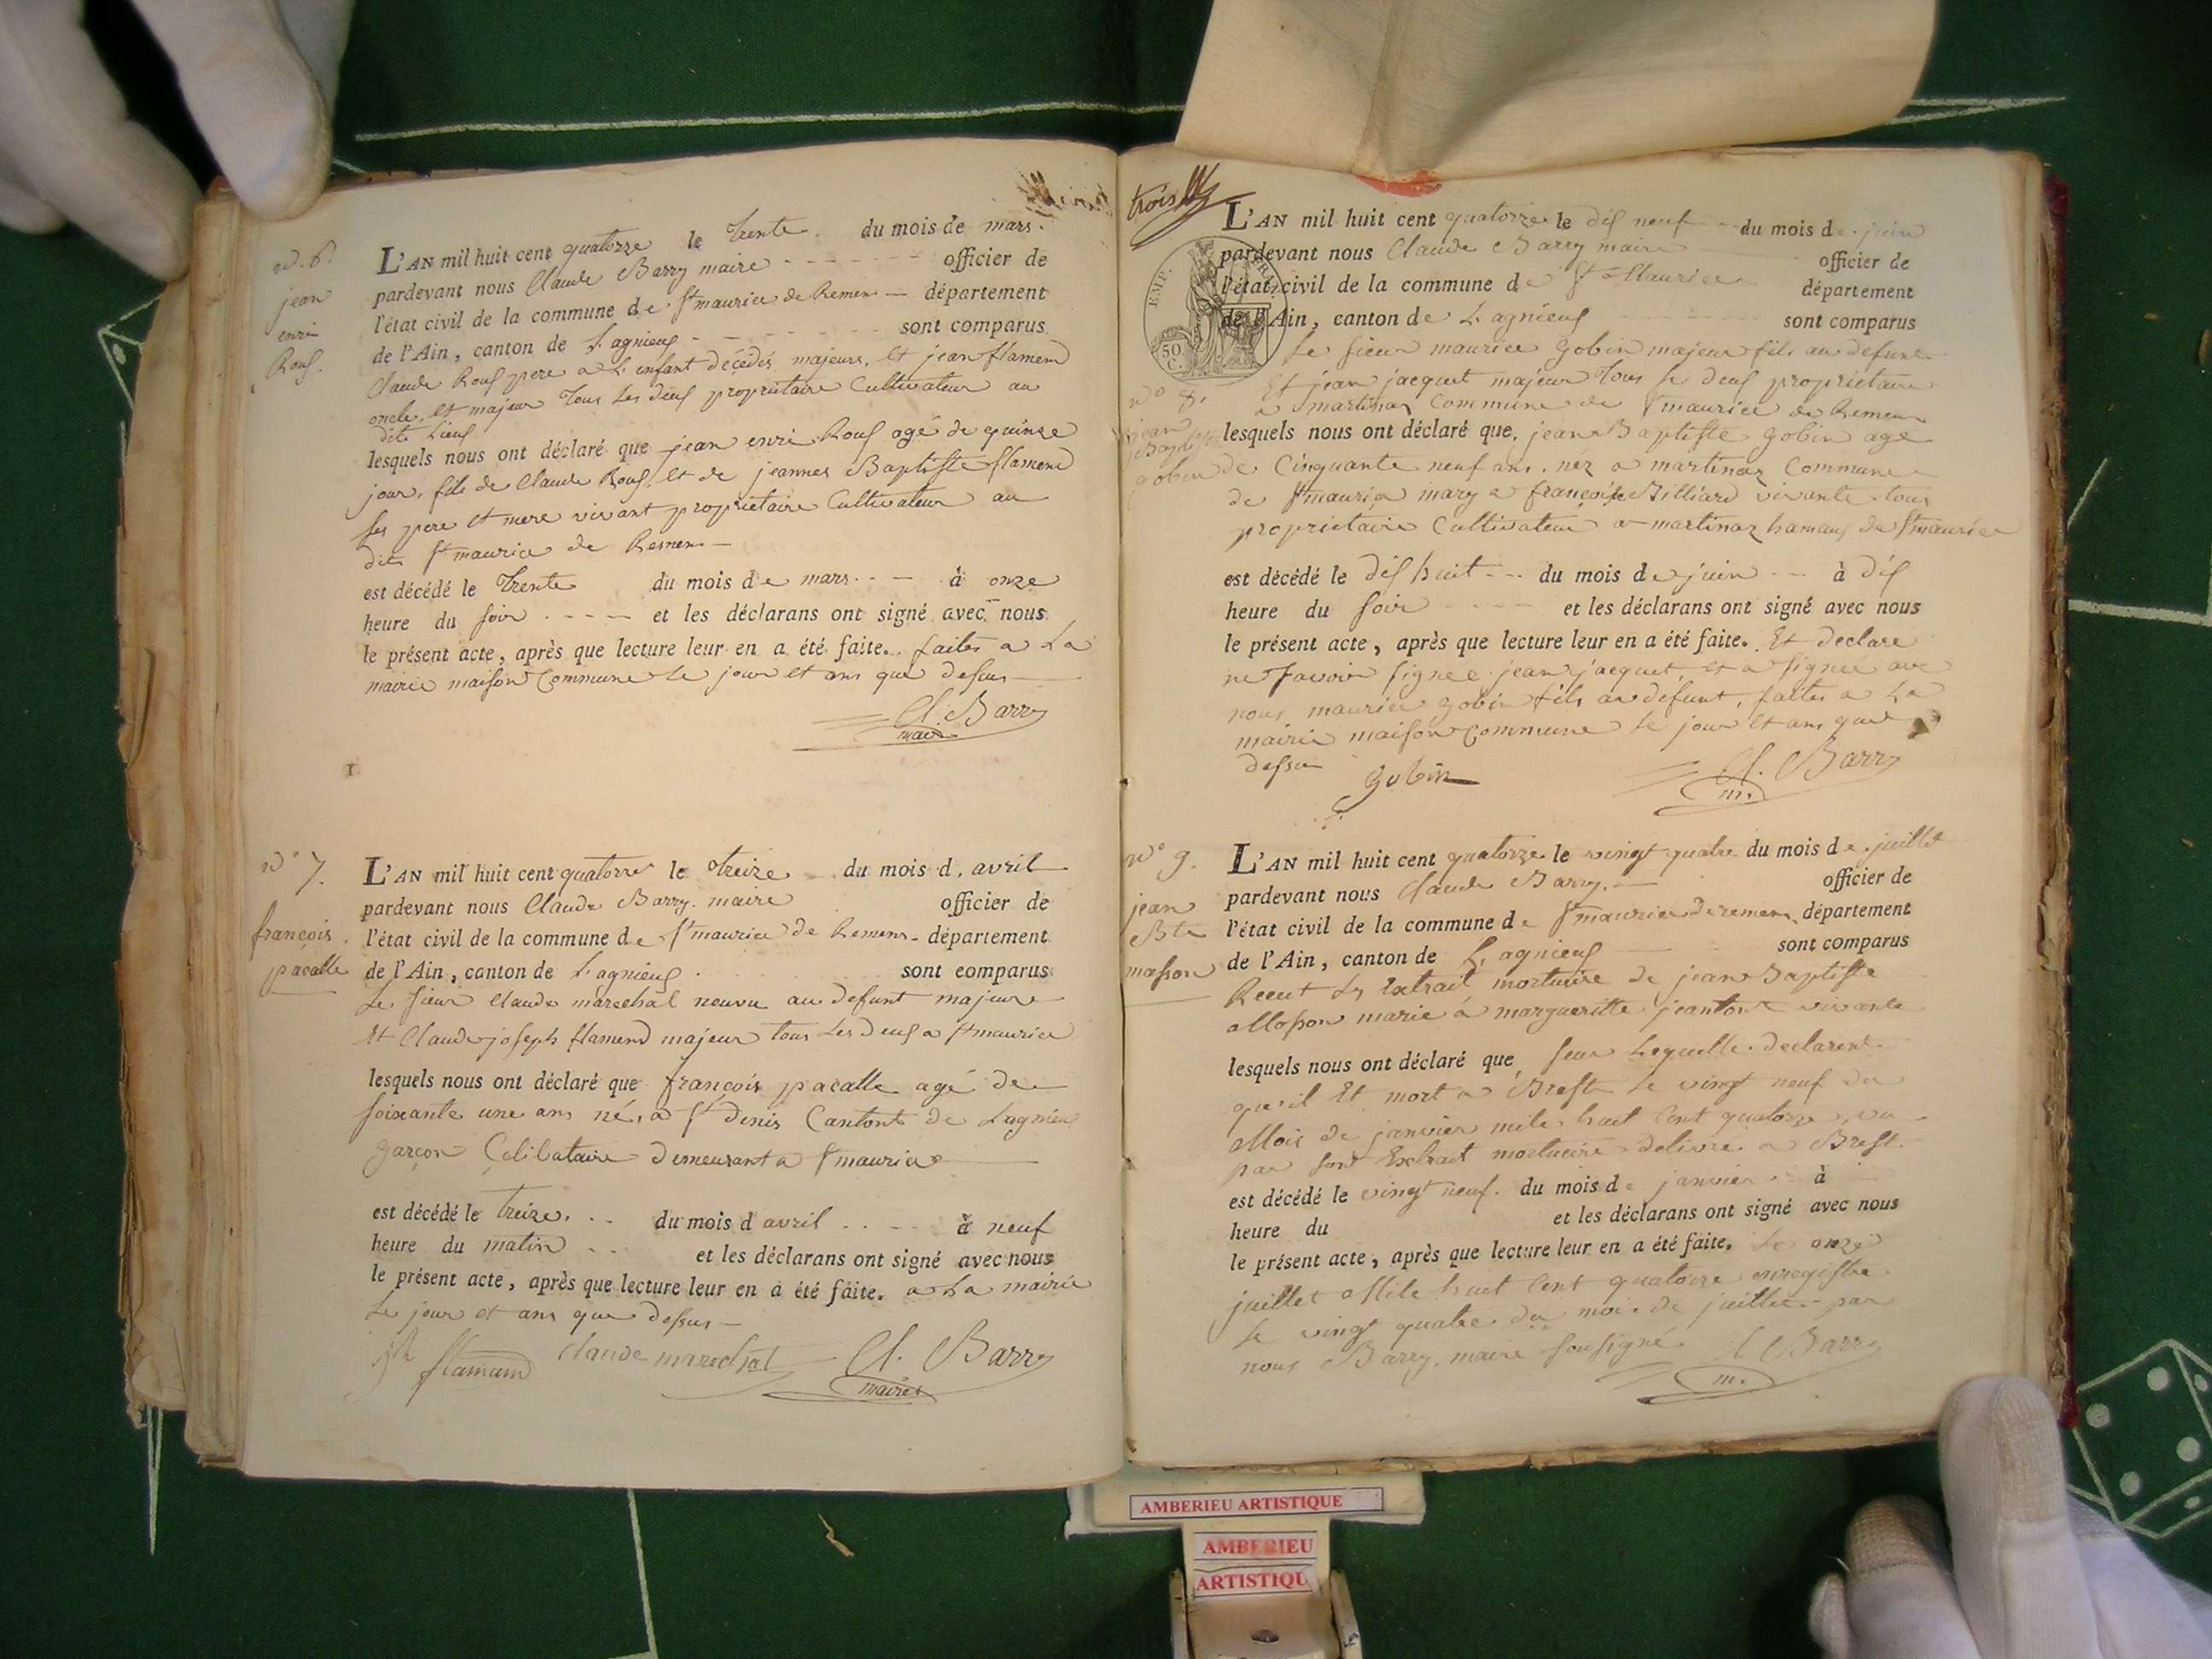 n°. 6.
jean
enri
Rouf.
L'AN mil huit cent quatorze le trente du mois de mars.
pardevant nous Claude Barry maire officier de
l'état civil de la commune de St maurice de Remens département
de l'Ain, canton de L'agnieuf sont comparus
Claude Rouf pere a L'enfant décédés majeurs, Et jean flamend
oncle, et majeur Tous Les deuf propriétaire Cultivateur au
dits Lieuf
lesquels nous ont déclaré que jean enri Rouf agé de quinze
jour, fils de Claude Rouf, et de jeannes Baptiste flamend
ses pere et mere vivant propriétaire Cultivateur au
dits St maurice de Remens
est décédé le Trente du mois de mars à onze
heure du soir et les déclarans ont signé avec nous
le présent acte, après que lecture leur en a été faite. faites a La
mairie maison Commune Le jour et ans que desus
Cl. Barry
maire
n° 7.
françois
pacalle
L'AN mil huit cent quatorze le treize du mois d. avril
pardevant nous Claude Barry. maire officier de
l'état civil de la commune de St maurice de Remens département
de l'Ain, canton de L'agnieuf sont comparus
Le sieur Claude marechal neuvu au defunt majeure
Et Claude joseph flamend majeur tous Les deuf a St maurice
lesquels nous ont déclaré que françois pacalle agé de
soixante une ans né, a St denis Cantont de Lagnieu
garçon Célibataire demeurant a St maurice
est décédé le treize. du mois d avril à neuf
heure du matin et les déclarans ont signé avec nous
le présent acte, après que lecture leur en a été faite. a La mairie
Le jour et ans que desus
jh flamand Claude marechal Cl. Barry
maire
trois
EMP. FRAN.
50 C.
L'AN mil huit cent quatorze le dif neuf du mois de juin
pardevant nous Claude Barry maire officier de
l'état civil de la commune de St Maurice département
de l'Ain, canton de L'agnieuf sont comparus
Le sieur maurice gobin majeur fils au defunt
Et jean jacquet majeur Tous Les deuf proprietaire
a martinaz Commune de St maurice de Remens
n° 8.
jean
Baptiste
gobin
lesquels nous ont déclaré que, jean Baptiste gobin agé
de Cinquante neuf ans. néz a martinaz Commune
de St mauric mary a françoise Billiard vivante tous
propriétaire Cultivateur a martinaz hamauf de St maurice
est décédé le dif huit du mois de juin à dif
heure du soir et les déclarans ont signé avec nous
le présent acte, après que lecture leur en a été faite. Et declare
ne savoir signee jean jacquet et a signée avec
nous maurice gobin fils au defunt, faites a La
mairie maison Commune Le jour et ans que
dessu
gobin Cl. Barry
m.
n° 9.
jean
Bte
masson
L'AN mil huit cent quatorze le vingt quatre du mois de juillet
pardevant nous Claude Barry. officier de
l'état civil de la commune de St maurice de remens département
de l'Ain, canton de L'agnieuf sont comparus
Recut Ls Extrait mortuaire de jean Baptiste
Masson marié a margueritte jeantont vivante
lesquels nous ont déclaré que seur Lequelle declarent
qu'il Et mort a Brest Le vingt neuf du
Mois de janvier mile huit Cent quatorze, vu
par sont Extrait mortuaire delivre a Brest
est décédé le vingt neuf. du mois de janvier à
heure du et les déclarans ont signé avec nous
le présent acte, après que lecture leur en a été faite. Le onze
juillet Mile huit Cent quatorze enregistre
Le vingt quatre du mois de juillet par
nous Barry. maire sousigné Cl Barry
m.
AMBERIEU ARTISTIQUE
AMBERIEU
ARTISTIQU